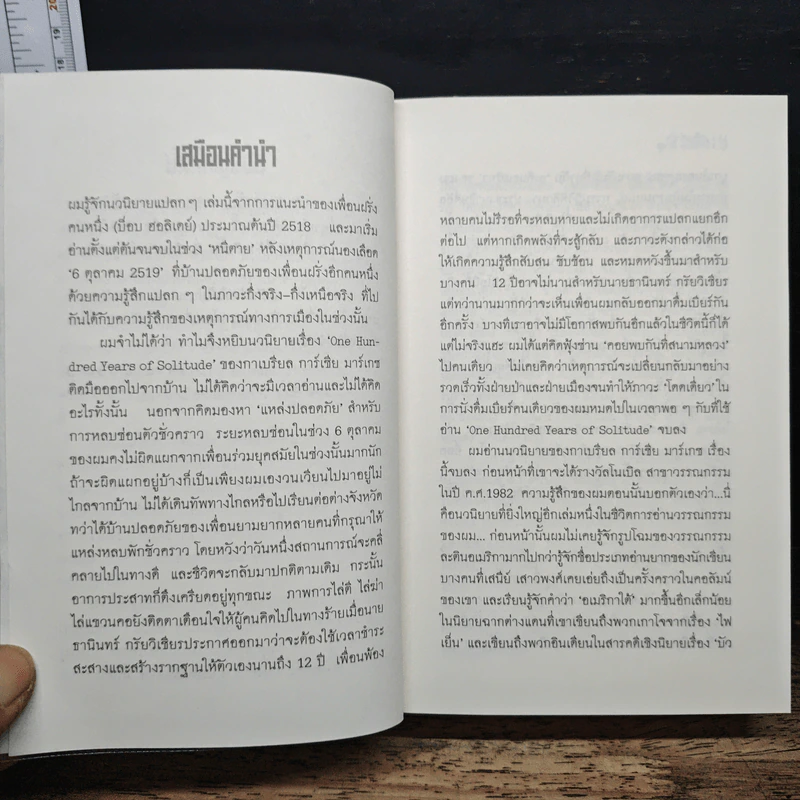 เสมือนคำนำ
ผมรู้จักนวนิยายแปลก ๆ เล่มนี้จากการแนะนำของเพื่อนฝรั่ง
คนหนึ่ง (บ็อบ ฮอลิเดย์) ประมาณต้นปี 2518 และมาเริ่ม
อ่านตั้งแต่ต้นจนจบในช่วง ‘หนีตาย’ หลังเหตุการณ์นองเลือด
‘6 ตุลาคม 2519’ ที่บ้านปลอดภัยของเพื่อนฝรั่งอีกคนหนึ่ง
ด้วยความรู้สึกแปลก ๆ ในภาวะกึ่งจริง-กึ่งเหนือจริง ที่ไป
กันได้กับความรู้สึกของเหตุการณ์ทางการเมืองในช่วงนั้น
ผมจำไม่ได้ว่า ทำไมจึงหยิบนวนิยายเรื่อง ‘One Hun-
dred Years of Solitude’ ของกาเบรียล การ์เซีย มาร์เกซ
ติดมือออกไปจากบ้าน ไม่ได้คิดว่าจะมีเวลาอ่านและไม่ได้คิด
อะไรทั้งนั้น นอกจากคิดมองหา ‘แหล่งปลอดภัย’ สำหรับ
การหลบซ่อนตัวชั่วคราว ระยะหลบซ่อนในช่วง 6 ตุลาคม
ของผมคงไม่ผิดแผกจากเพื่อนร่วมยุคสมัยในช่วงนั้นมากนัก
ถ้าจะผิดแผกอยู่บ้างก็เป็นเพียงผมเองวนเวียนไปมาอยู่ไม่
ไกลจากบ้าน ไม่ได้เดินทัพทางไกลหรือไปเรียนต่อต่างจังหวัด
ทว่าได้บ้านปลอดภัยของเพื่อนยามยากหลายคนที่กรุณาให้
แหล่งหลบพักชั่วคราว โดยหวังว่าวันหนึ่งสถานการณ์จะคลี่
คลายไปในทางดี และชีวิตจะกลับมาปกติตามเดิม กระนั้น
อาการประสาทก็ตึงเครียดอยู่ทุกขณะ ภาพการไล่ตี ไล่ฆ่า
ไล่แขวนคอยังติดตาเตือนใจให้ผู้คนคิดไปในทางร้ายเมื่อนาย
ธานินทร์ กรัยวิเชียรประกาศออกมาว่าจะต้องใช้เวลาชำระ
สะสางและสร้างรากฐานให้ตัวเองนานถึง 12 ปี เพื่อนพ้อง
หลายคนไม่รีรอที่จะหลบหายและไม่เกิดอาการแปลกแยกอีก
ต่อไป แต่หากเกิดพลังที่จะสู้กลับ และภาวะดังกล่าวได้ก่อ
ให้เกิดความรู้สึกสับสน ซับซ้อน และหมดหวังขึ้นมาสำหรับ
บางคน 12 ปีอาจไม่นานสำหรับนายธานินทร์ กรัยวิเชียร
แต่ทว่านานมากกว่าจะเห็นเพื่อนผมกลับออกมาดื่มเบียร์กัน
อีกครั้ง บางทีเราอาจไม่มีโอกาสพบกันอีกแล้วในชีวิตนี้ก็ได้
แต่ไม่จริงแฮะ ผมได้แต่คิดฟุ้งซ่าน ‘คอยพบกันที่สนามหลวง’
ไปคนเดียว ไม่เคยคิดว่าเหตุการณ์จะเปลี่ยนกลับมาอย่าง
รวดเร็วทั้งฝ่ายป่าและฝ่ายเมืองจนทำให้ภาวะ ‘โดดเดี่ยว’ ใน
การนั่งดื่มเบียร์คนเดียวของผมหมดไปในเวลาพอ ๆ กับที่ใช้
อ่าน ‘One Hundred Years of Solitude’ จบลง
ผมอ่านนวนิยายของกาเบรียล การ์เซีย มาร์เกซ เรื่อง
นี้จบลง ก่อนหน้าที่เขาจะได้รางวัลโนเบิล สาขาวรรณกรรม
ในปี ค.ศ.1982 ความรู้สึกของผมตอนนั้นบอกตัวเองว่า...นี่
คือนวนิยายที่ยิ่งใหญ่อีกเล่มหนึ่งในชีวิตการอ่านวรรณกรรม
ของผม... ก่อนหน้านั้นผมไม่เคยรู้จักรูปโฉมของวรรณกรรม
ละตินอเมริกามากไปกว่ารู้จักชื่อประเภทอ่านยากของนักเขียน
บางคนที่เสนีย์ เสาวพงศ์เคยเอ่ยถึงเป็นครั้งคราวในคอลัมน์
ของเขา และเรียนรู้จักคำว่า ‘อเมริกาใต้’ มากขึ้นอีกเล็กน้อย
ในนิยายฉากต่างแดนที่เขาเขียนถึงพวกเกาโจจากเรื่อง ‘ไฟ
เย็น’ และเขียนถึงพวกอินเดียนในสารคดีเชิงนิยายเรื่อง ‘บัว